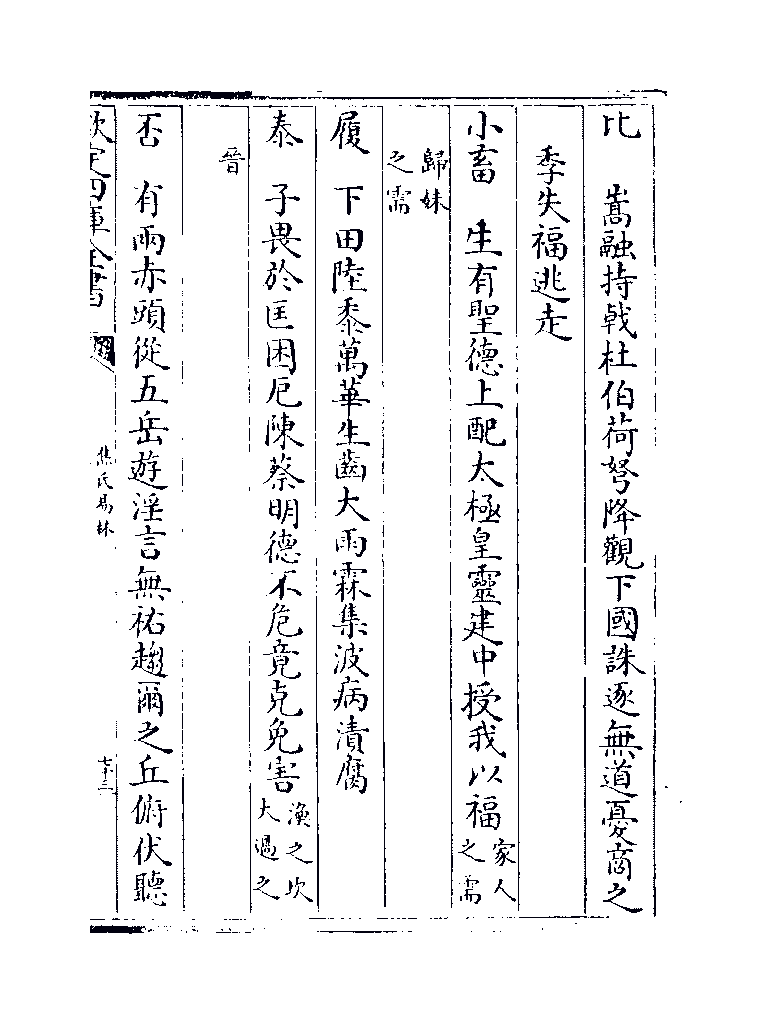 比　嵩融持戟杜伯荷弩降觀下國誅逐無道憂商之
季失福逃走
小畜　生有聖德上配太極皇靈建中授我以福家人
之需
歸妹
之需
履　下田陸黍萬華生齒大雨霖集波病潰腐
泰　子畏於匡困厄陳蔡明德不危竟克免害渙之坎
大過之
晉
否　有兩赤頭從五岳遊淫言無祐趨爾之丘俯伏聽
欽定四庫全書
焦氏易林
七十三